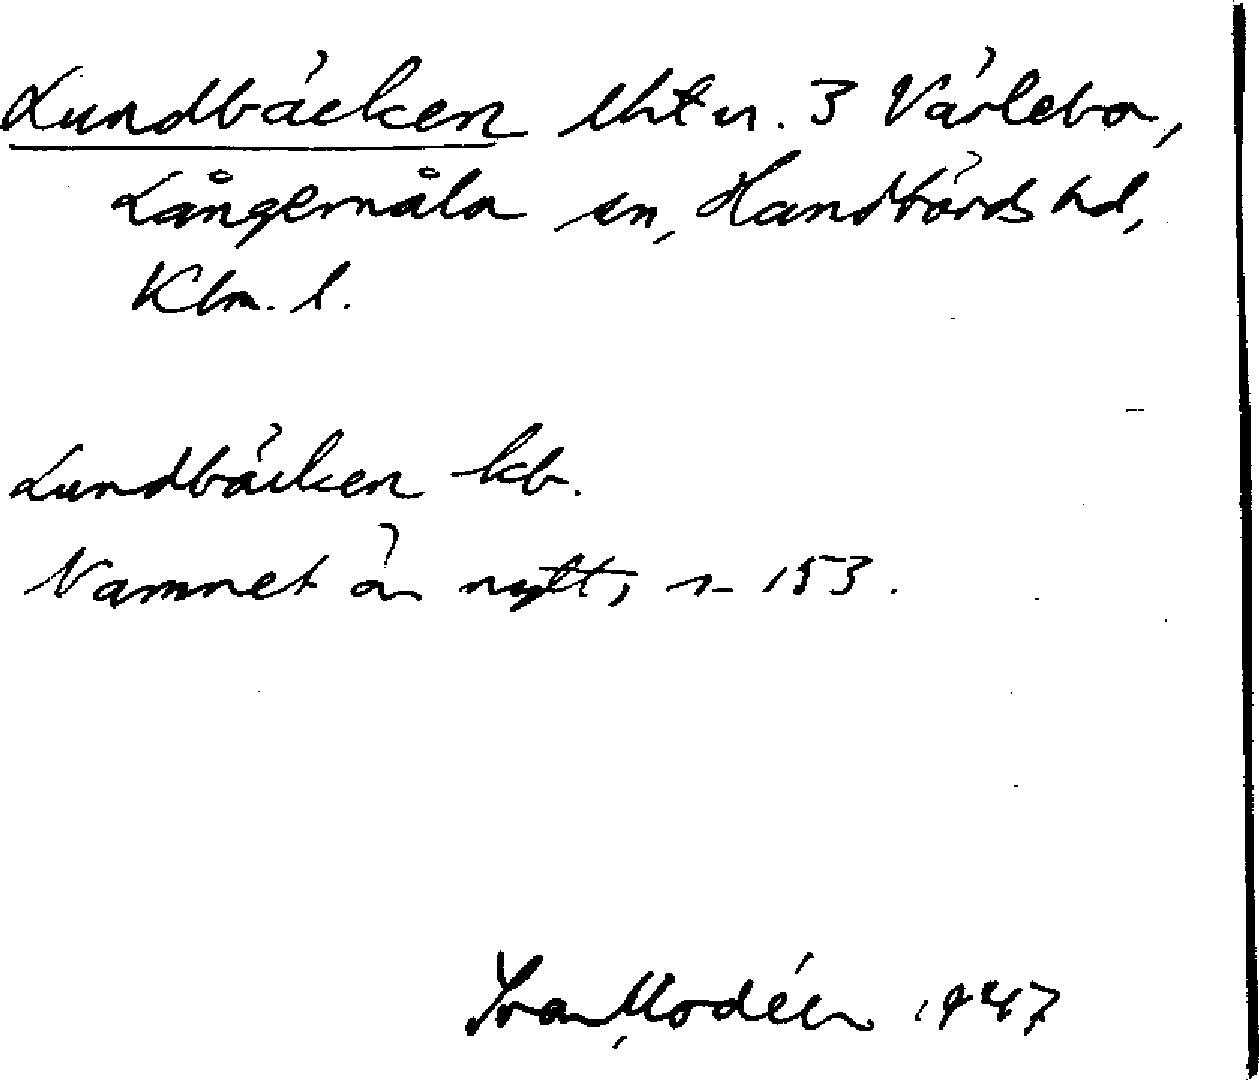 Lundbäcken lht u. 3 Värlebo,
Långemåla sn, Handbörds hd,
Klm. l.
Lundbäcken kb.
Namnet är nytt, s- 153.
Ivar Modéer 1947